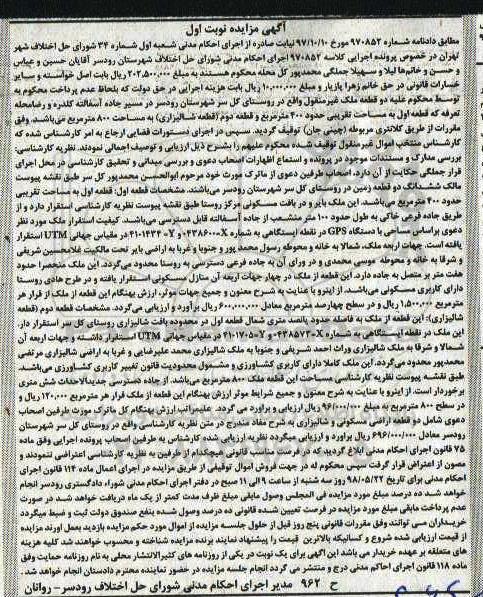 آگهی مزایده نوبت اول
مطابق دادنامه شماره ۹۷۰۸۵۲ مورخ ۹۷/۱۰/۱۰ نیابت صادره از اجرای احکام مدنی شعبه اول شماره ۳۴ شورای حل اختلاف شهر
تهران در خصوص پرونده اجرایی کلاسه ۹۷۰۸۵۲ اجرای احکام مدنی شورای حل اختلاف شهرستان رودسر آقایان حسین و عباس
و حسن و خانم‌ها لیلا و سهیلا جملگی محمدپور کل محله محکوم هستند به مبلغ ۲۰۲,۵۰۰,۰۰۰ ریال بابت اصل خواسته و سایر
خسارات قانونی در حق خانم زهرا پازیار و مبلغ ۱۰,۰۰۰,۰۰۰ ریال بابت هزینه اجرایی در حق دولت که بلحاظ عدم پرداخت محکوم به
توسط محکوم علیه دو قطعه ملک غیرمنقول واقع در روستای کل سر شهرستان رودسر در مسیر جاده آسفالته کلدره و رضامحله
تعرفه که قطعه اول به مساحت تقریبی حدود ۴۰۰ مترمربع و قطعه دوم (قطعه شالیزاری) به مساحت ۸۰۰ مترمربع می‌باشد. وفق
مقررات از طریق کلانتری مربوطه (چینی جان) توقیف گردید. سپس در اجرای دستورات قضایی ارجاع به امر کارشناس شده که
کارشناس منتخب اموال غیرمنقول توقیف شده محکوم علیهم را بشرح ذیل ارزیابی و توصیف اجمالی نمودند. نظریه کارشناسی:
بررسی مدارک و مستندات موجود در پرونده و استماع اظهارات اصحاب دعوی و بررسی میدانی و تحقیق کارشناسی در محل اجرای
قرار جملگی حکایت از آن دارد، اصحاب طرفین دعوی از ماترک مورث خود مرحوم ابوالحسن محمدپور کل سر طبق نقشه پیوست
مالک ششدانگ دو قطعه زمین در روستای کل سر شهرستان رودسر می‌باشند. مشخصات قطعه اول: قطعه اول به مساحت تقریبی
حدود ۴۰۰ مترمربع می‌باشد. این ملک بایر و در بافت مسکونی مرکز روستا طبق نقشه پیوست نظریه کارشناسی استقرار دارد و از
طریق جاده فرعی خاکی به طول حدود ۱۰۰ متر منشعب از جاده آسفالته قابل دسترسی می‌باشد. کیفیت استقرار ملک مورد نظر
دعوی براساس مساحی با دستگاه GPS در نقطه ایستگاهی به شماره X=۰۴۳۸۶۰۰ و Y=۴۱۰۱۴۳۳ در مقیاس جهانی UTM استقرار
یافته است. جهات اربعه ملک، شمالا به خانه و محوطه رسول محمد پور و جنوبا و غربا به اراضی بایر تحت مالکیت غلامحسین شریفی
و شرقا به خانه و محوطه موسی محمدی و در ورای آن به جاده فرعی دسترسی به روستا محدود می‌گردد. این ملک منحصرا حدود
هفت متر بر متصل به جاده دارد. این قطعه از ملک در چهار جهات اربعه آن منازل مسکونی استقرار یافته و در طرح هادی روستا
دارای کاربری مسکونی می‌باشد. از اینرو با عنایت به شرح معنون و جمیع جهات موثر، ارزش بهنگام این قطعه از ملک از قرار هر
مترمربع ۱,۵۰۰,۰۰۰ ریال و در سطح چهارصد مترمربع معادل ۶۰۰,۰۰۰,۰۰۰ ریال برآورد و ارزیابی می‌گردد. مشخصات قطعه دوم (قطعه
شالیزاری): این قطعه از ملک به فاصله حدود پانصد متری شمال قطعه اول در محدوده بافت شالیزاری روستای کل سر استقرار دارد.
این ملک در نقطه ایستگاهی به شماره X=۰۴۳۸۵۷۳ و Y=۴۱۰۱۷۰۵ در مقیاس جهانی UTM استقرار داشته و جهات اربعه آن
شمالا و شرقا به ملک شالیزاری وراث احمد شریفی و جنوبا به ملک شالیزاری محمد علیرضایی و غربا به اراضی شالیزاری مرتضی
محمدپور محدود می‌گردد. این ملک کاملا دارای کاربری کشاورزی و مشمول محدودیت قانون تغییر کاربری کشاورزی می‌باشد.
طبق نقشه پیوست نظریه کارشناسی مساحت این قطعه ملک ۸۰۰ مترمربع می‌باشد. از جاده دسترسی جدیدالاحداث شش متری
برخوردار است. از اینرو با عنایت به شرح معنون و جمیع شرایط موثر ارزش بهنگام این قطعه از ملک قرار هر مترمربع ۱۲۰,۰۰۰ ریال و
در سطح ۸۰۰ مترمربع به مبلغ ۹۶/۰۰۰/۰۰۰ ریال ارزیابی و برآورد می گردد. علیمراتب ارزش بهنگام کل ماترک مورث طرفین اصحاب
دعوی شامل دو قطعه اراضی مسکونی و شالیزاری به شرح مفاد مندرج در متن نظریه کارشناسی واقع در روستای کل سر شهرستان
رودسر معادل ۶۹۶/۰۰۰/۰۰۰ ریال برآورد و ارزیابی میگردد نظریه ارزیابی شده کارشناس به طرفین اصحاب پرونده اجرایی وفق ماده
۷۵ قانون اجرای احکام مدنی ابلاغ گردید که در فرصت مناسب قانونی هیچکدام از طرفین به نظریه کارشناسی اعتراضی ننمودند و
مصون از اعتراض قرار گرفت سپس محکوم له در جهت فروش اموال توقیفی از طریق مزایده در اجرای اعمال ماده ۱۱۴ قانون اجرای
احکام مدنی برای تاریخ ۹۸/۰۵/۲۲ روز سه شنبه از ساعت ۹ الی ۱۱ صبح در دفتر اجرای احکام مدنی شوراء دادگستری رودسر انجام
خواهد شد ده درصد مبلغ مورد مزایده فی المجلس وصول مابقی مبلغ ظرف مدت کمتر از یک ماه دریافت خواهد شد در صورت
عدم پرداخت مابقی مبلغ مورد مزایده در فرصت تعیین شده قانونی ده درصد وصول شده بنفع صندوق دولت ثبت و ضبط میگردد
خریداران می توانند وفق مقررات قانونی پنج روز قبل از حلول جلسه مزایده از اموال مورد حکم مزایده بازدید بعمل آورند مزایده
از قیمت ارزیابی شده شروع و کسانیکه بالاترین قیمت را پیشنهاد نمایند برنده مزایده شناخته و محسوب خواهند شد کلیه هزینه
های متعلقه بر عهده خریدار می باشد این آگهی برای یک نوبت در یکی از روزنامه های کثیرالانتشار محلی به نام روزنامه حمایت وفق
ماده ۱۱۸ قانون اجرای احکام مدنی درج و منتشر می گردد انجام جلسه مزایده در حضور نماینده محترم دادستان انجام خواهد شد.
ح ۹۶۲ مدیر اجرای احکام مدنی شورای حل اختلاف رودسر- روانان